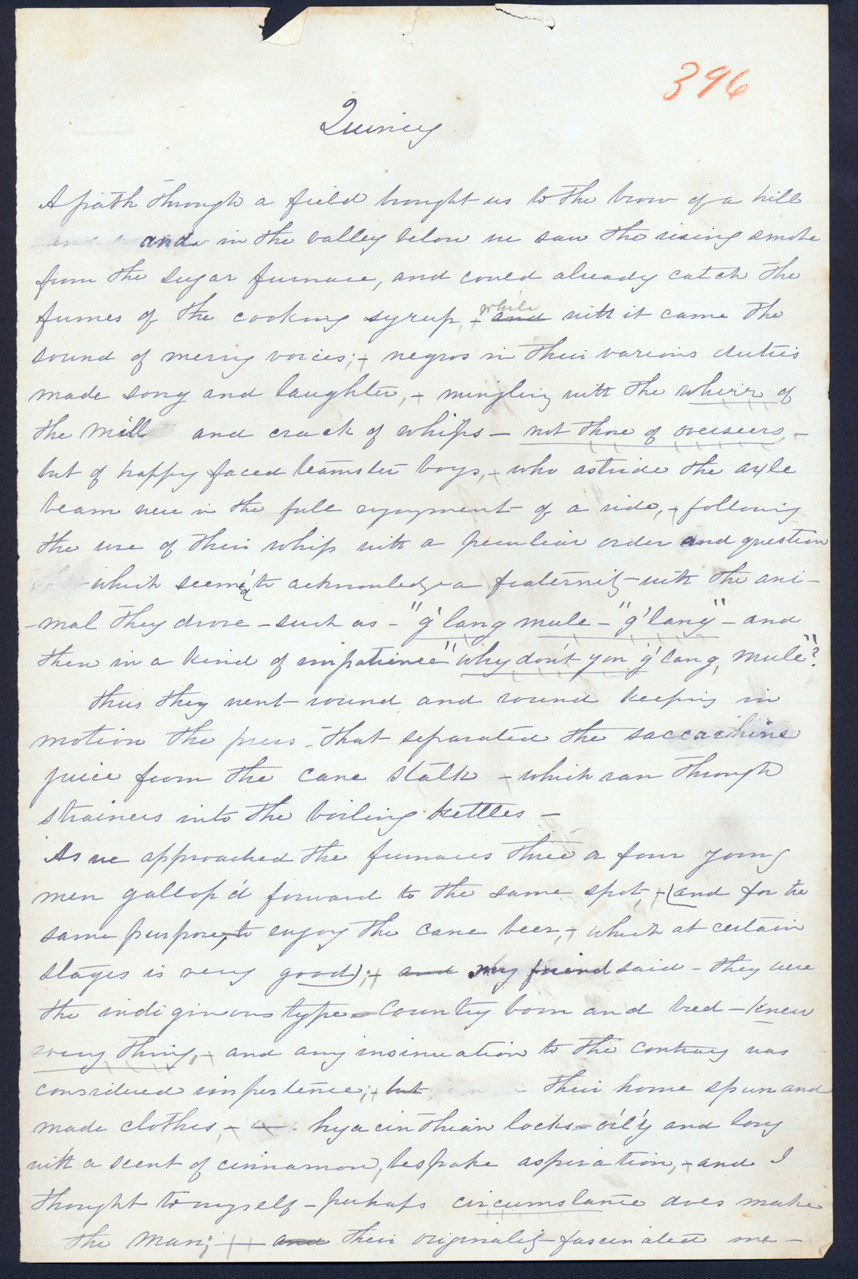 396
Quincy
A path through a field brought us to the brow of a hill
and in the valley below we saw the rising smoke
from the sugar furnace, and could already catch the
fumes of the cooking syrup, - and while with it came the
sound of merry voices; - negros in their various duties
made song and laughter, - mingling with the wherr of
the mill and crack of whips - not those of overseers, -
but of happy faced teamster boys, - who astride the axle
beam were in the full enjoyment of a ride, - following
the use of their whip with a peculiar order and question
- which seem'd to acknowledge a fraternity - with the ani-
-mal they drove - such as - "g'lang mule - "g'lang" - and
then in a kind of impatience "why don't you g'lang, mule"?
thus they went round and round keeping in
motion the press - that separated the saccachine
juice from the cane stalk - which ran through
strainers into the boiling kettles -
As we approached the furnaces three or four young
men gallop'd forward to the same spot, - (and for the
same purpose, to enjoy the cane beer, - which at certain
stages is very good); - and my friend said - they were
the indiginous type - Country born and bred - knew
every thing, - and any insinuation to the contrary was
considered impertence; - but their home spun and
made clothes, - hyacinthian locks - oil'y and long
with a scent of cinnamon, bespoke aspiration, - and I
thought to myself - perhaps circumstance does make
the man; - and their originality - fascinated me -